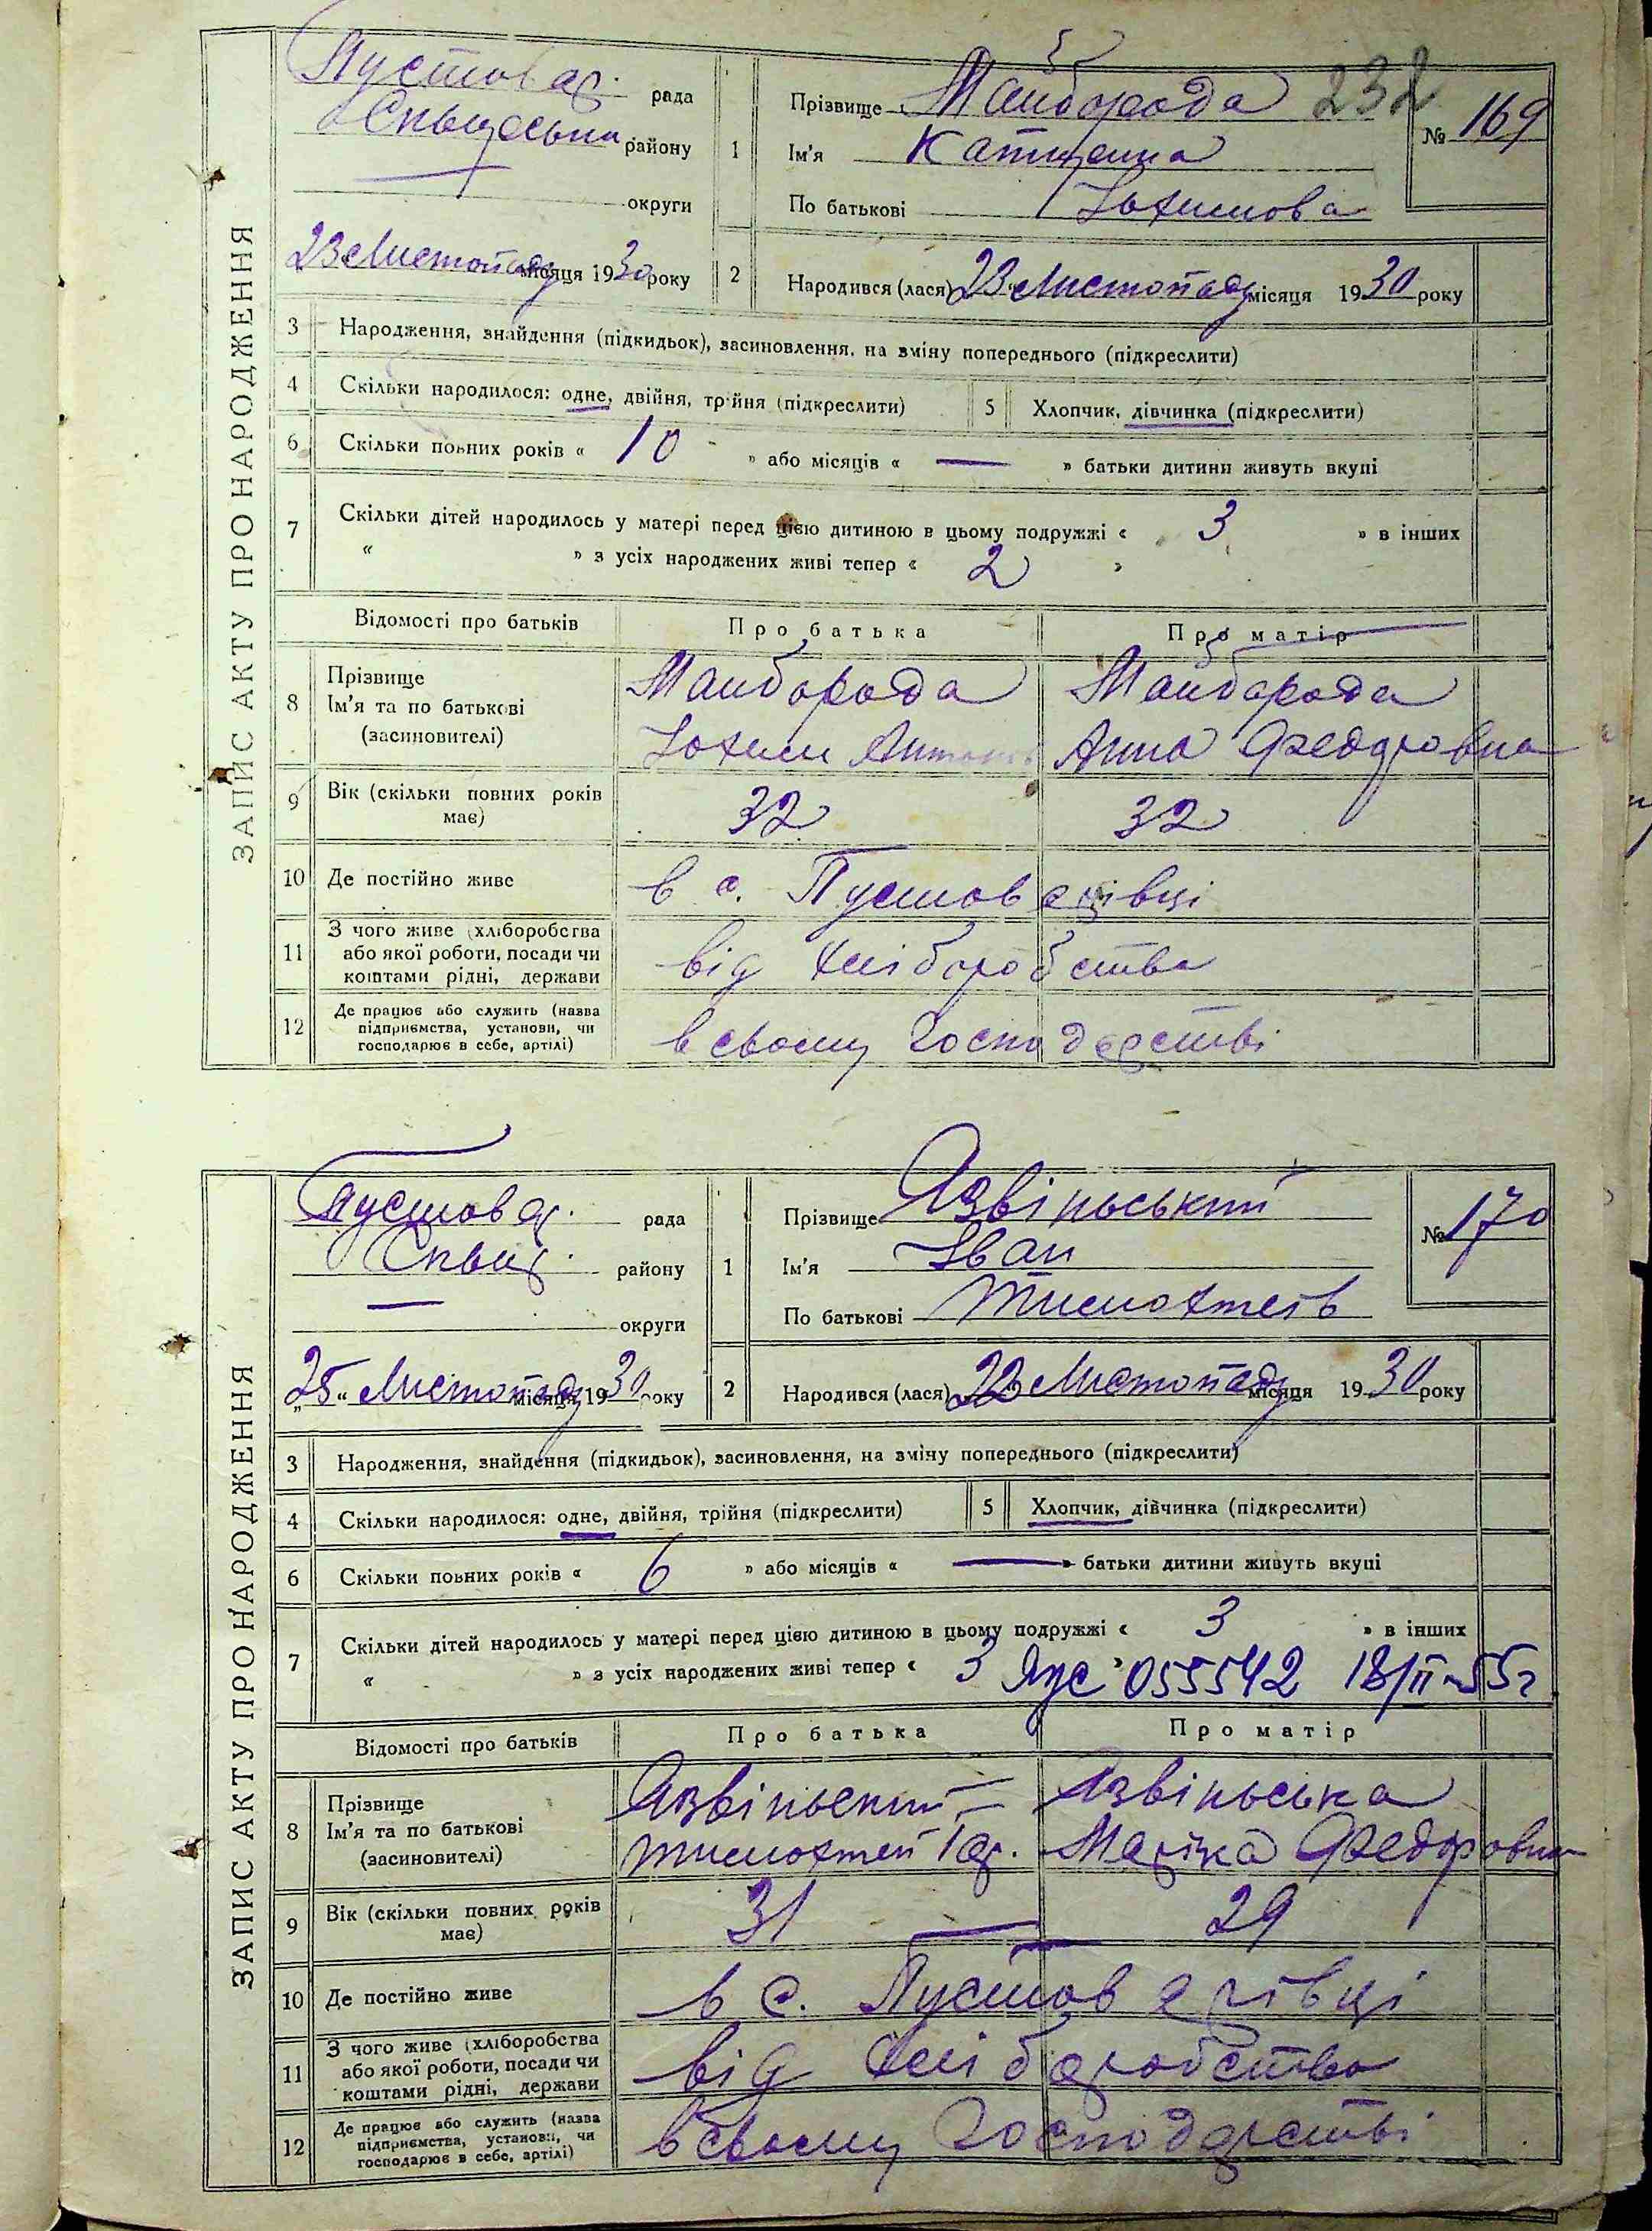 ЗАПИС АКТУ ПРО НАРОДЖЕННЯ
Пустовар. рада
Сквирська району
округи
23 Листопаду місяця 1930 року
1
Прізвище Майборода
Ім'я Катирина
По батькові Юхимова
232
№ 169
2
Народився (лася) 23 Листопаду місяця 1930 року
3 Народження, знайдення (підкидьок), засиновлення, на зміну попереднього (підкреслити)
4 Скільки народилося: одне, двійня, трійня (підкреслити)
5 Хлопчик, дівчинка (підкреслити)
6 Скільки повних років « 10 » або місяців « — » батьки дитини живуть вкупі
7 Скільки дітей народилось у матері перед цією дитиною в цьому подружжі « 3 » в інших
« » з усіх народжених живі тепер « 2 »
Відомості про батьків Про батька Про матір
8 Прізвище
Ім'я та по батькові
(засиновителі)
Майборода
Юхим Антонов
Майборода
Анна Федоровна
9 Вік (скільки повних років має) 32 32
10 Де постійно живе в с. Пустоварівці
11 З чого живе (хліборобства
або якої роботи, посади чи
коштами рідні, держави
від хліборобства
12 Де працює або служить (назва
підприємства, установи, чи
господарює в себе, артілі)
в своему господарстві
ЗАПИС АКТУ ПРО НАРОДЖЕННЯ
Пустовар. рада
Сквир. району
округи
„25“ Листопаду місяця 1930 року
1
Прізвище Язвінський
Ім'я Іван
По батькові Тимохтеів
№ 170
2
Народився (лася) 22 Листопаду місяця 1930 року
3 Народження, знайдення (підкидьок), засиновлення, на зміну попереднього (підкреслити)
4 Скільки народилося: одне, двійня, трійня (підкреслити)
5 Хлопчик, дівчинка (підкреслити)
6 Скільки повних років « 6 » або місяців « — » батьки дитини живуть вкупі
7 Скільки дітей народилось у матері перед цією дитиною в цьому подружжі « 3 » в інших
« » з усіх народжених живі тепер « 3 » 055542 18/II-55г
Відомості про батьків Про батька Про матір
8 Прізвище
Ім'я та по батькові
(засиновителі)
Язвінський
Тимохтей
Язвінська
Марїка Федоровна
9 Вік (скільки повних років має) 31 29
10 Де постійно живе в с. Пустоварівці
11 З чого живе (хліборобства
або якої роботи, посади чи
коштами рідні, держави
від хліборобства
12 Де працює або служить (назва
підприємства, установи, чи
господарює в себе, артілі)
в своему господарстві